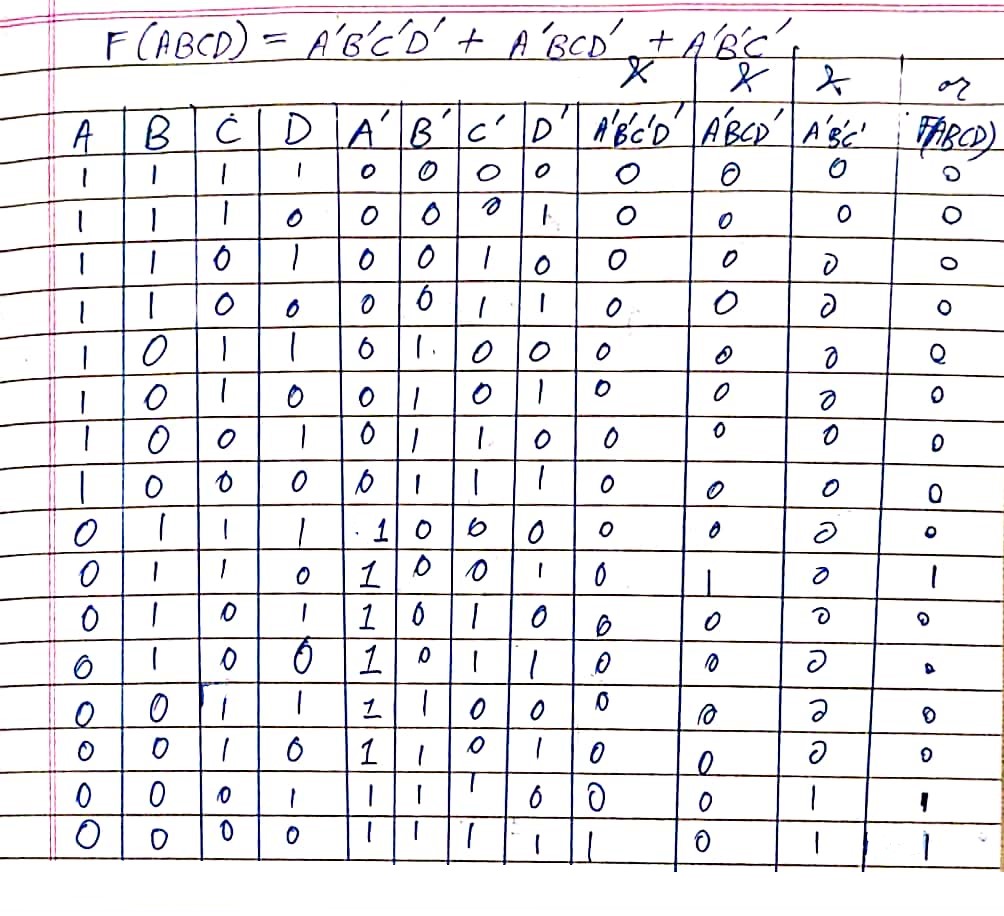 F(ABCD) = A'B'C'D' + A'BCD' + A'B'C'
& & & or
A B C D A' B' C' D' A'B'C'D' A'BCD' A'B'C' F(ABCD)
1 1 1 1 0 0 0 0 0 0 0 0
1 1 1 0 0 0 0 1 0 0 0 0
1 1 0 1 0 0 1 0 0 0 0 0
1 1 0 0 0 0 1 1 0 0 0 0
1 0 1 1 0 1 0 0 0 0 0 0
1 0 1 0 0 1 0 1 0 0 0 0
1 0 0 1 0 1 1 0 0 0 0 0
1 0 0 0 0 1 1 1 0 0 0 0
0 1 1 1 1 0 0 0 0 0 0 0
0 1 1 0 1 0 0 1 0 1 0 1
0 1 0 1 1 0 1 0 0 0 0 0
0 1 0 0 1 0 1 1 0 0 0 0
0 0 1 1 1 1 0 0 0 0 0 0
0 0 1 0 1 1 0 1 0 0 0 0
0 0 0 1 1 1 1 0 0 0 1 1
0 0 0 0 1 1 1 1 1 0 1 1